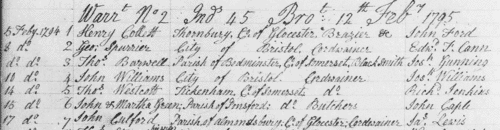 Warrt. No 2 Ind 45 Brot. 12th Feby. 1795
5 Feby. 1794 1 Henry Collett Thornbury, Co. of Glocester Brazier & John Ford
8 do. 2 Geo. Spurrier City of Bristol, Cordwainer Edwd. T. Cann
do. do. 3 Thos. Barwell Parish of Bedminster, Co. of Somerset, Black Smith Jos. Gunning
10 do. 4 John Williams City of Bristol Cordwainer Jos. Williams
14 do. 5 Thos. Westcott Tickenham, Co. of Somerset, do. Richd. Jenkins
15 do. 6 John & Martha Green, Parish of do. Butchers John Caple
17 do. 7 John Parish of Almondsbury, Co. of Glocester, Cordwainer Jas. Lewis